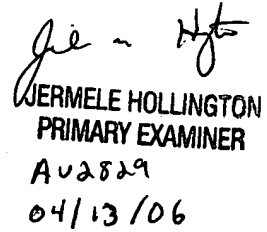 JERMELE HOLLINGTON
PRIMARY EXAMINER
AU2829
04/13/06